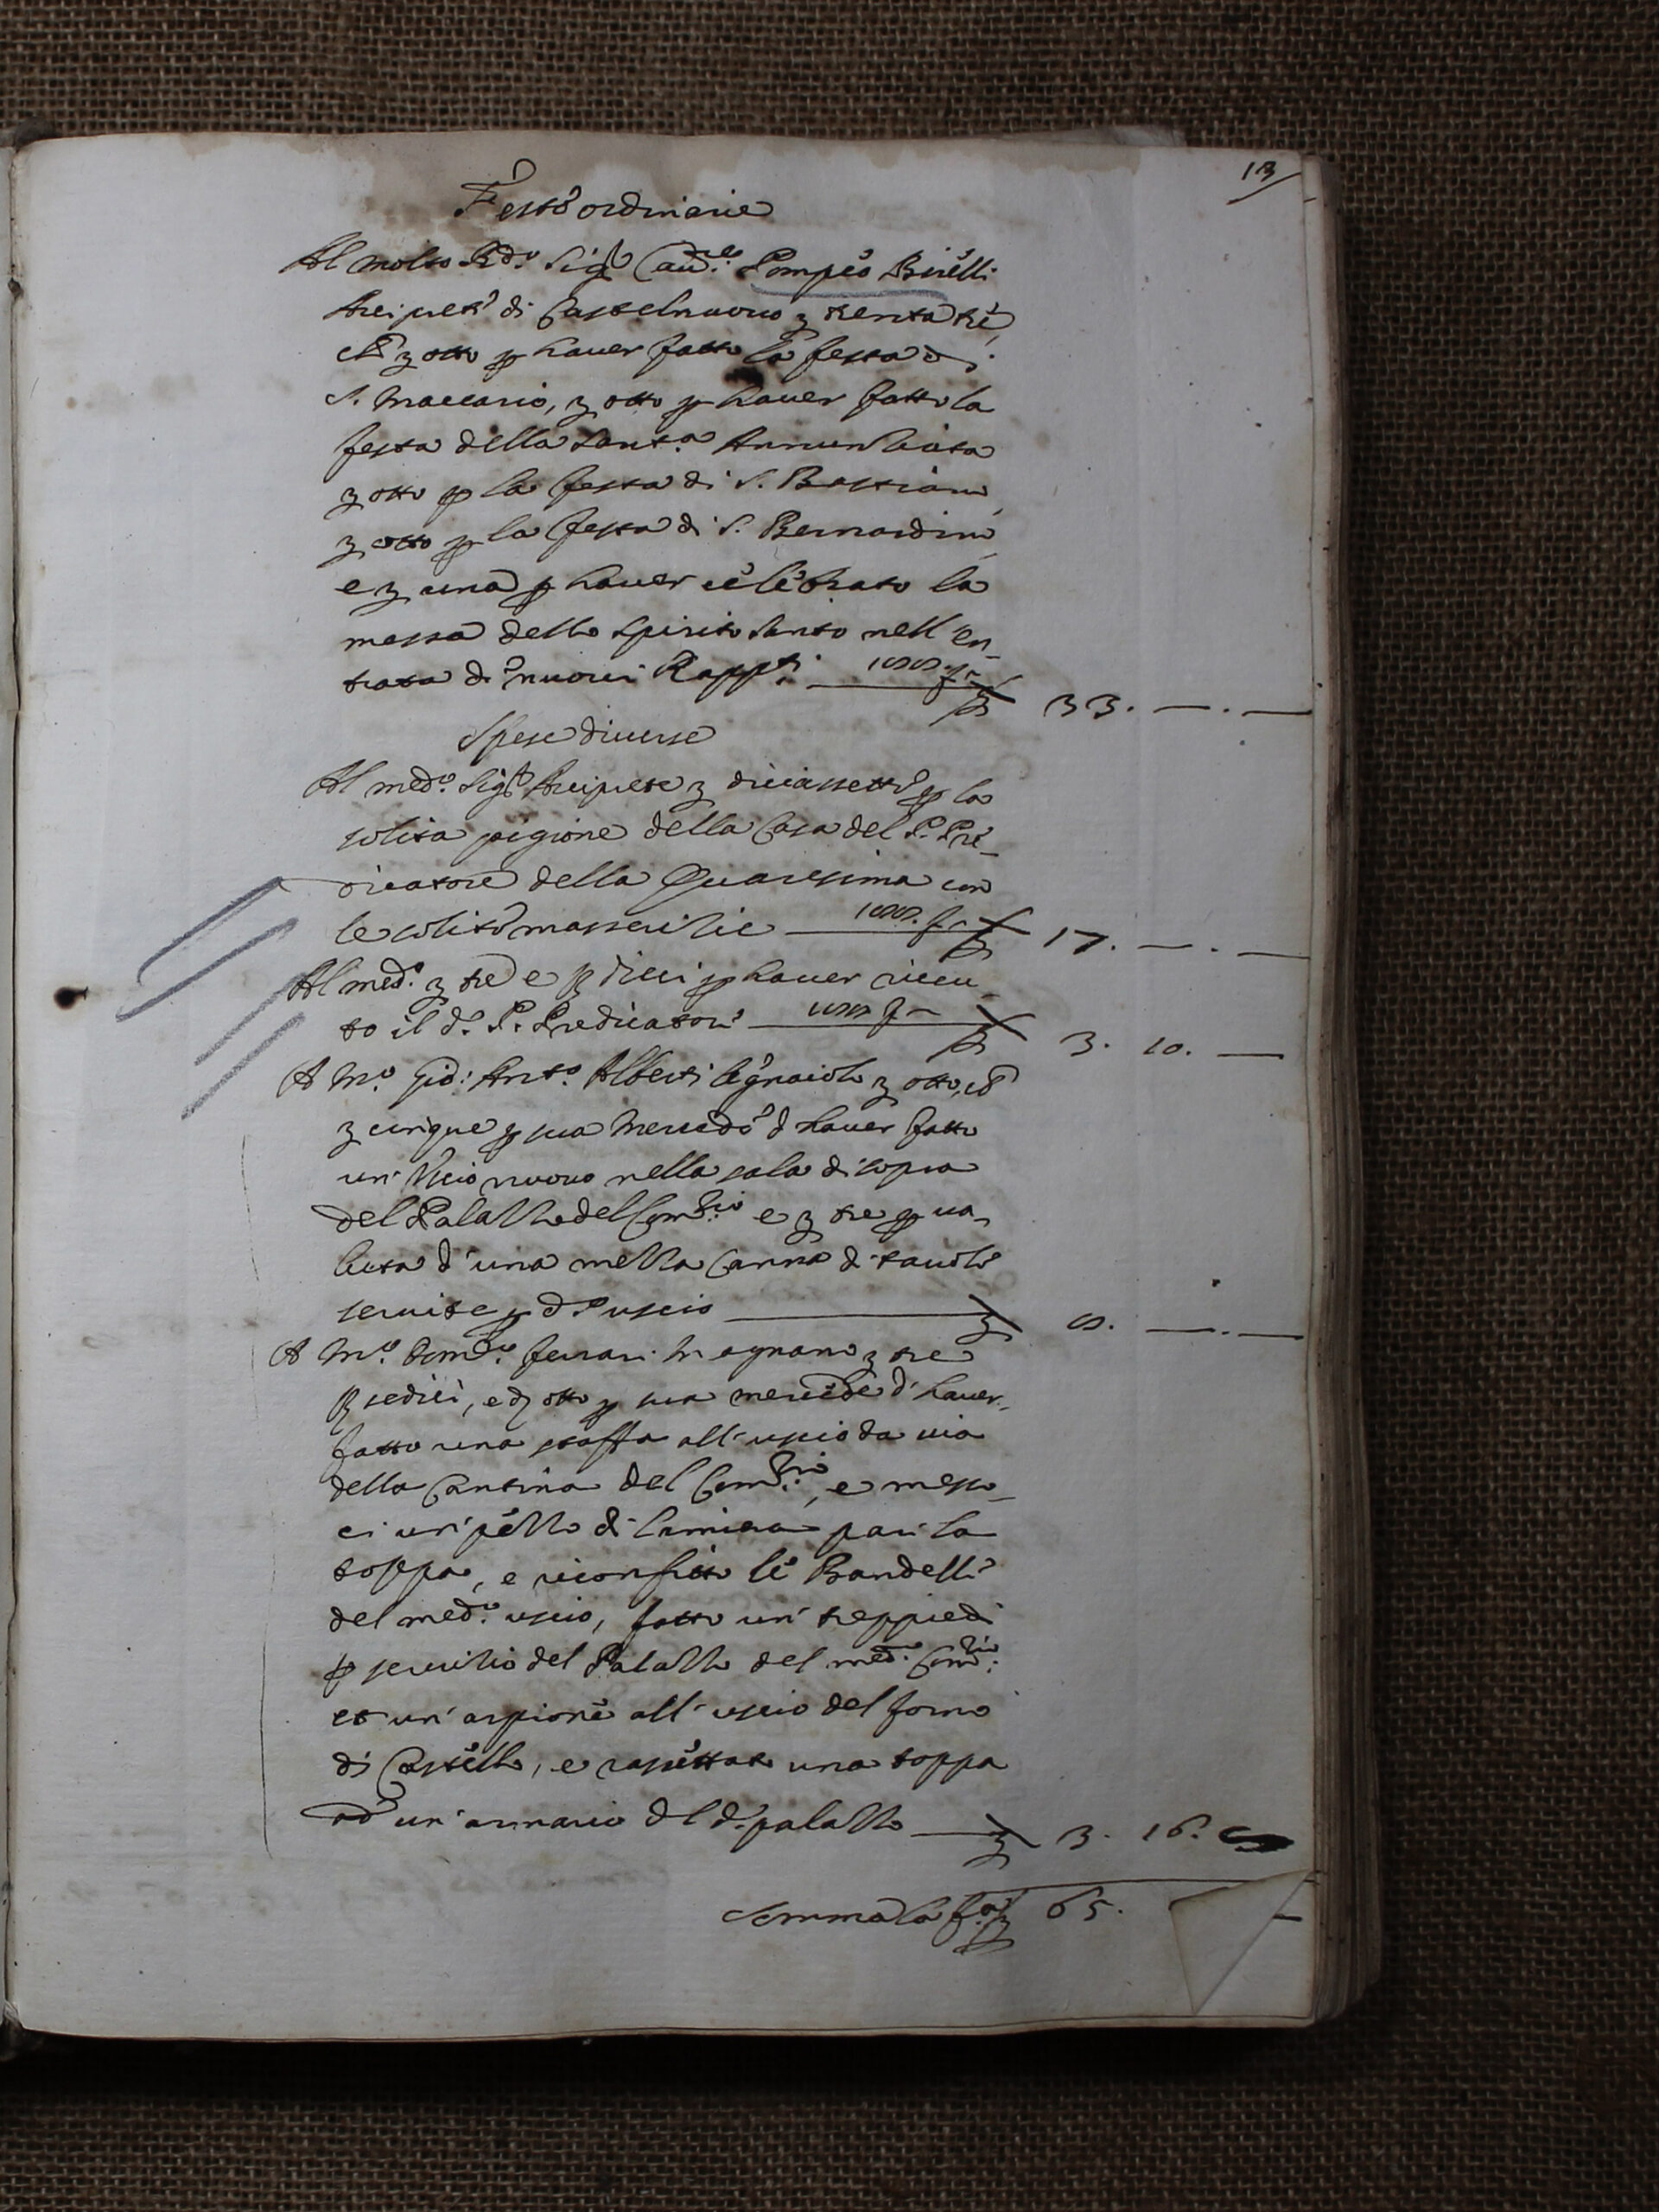 13
Feste ordinarie
Al molto Rdo. Sigr. Cau.re Pompeo Binelli
Arciprete di Castelnuouo ʒ trenta tre,
cioè ʒ otto p hauer fatto la festa di
S. Maccario, ʒ otto p hauer fatto la
festa della Sant.a Annunziata
ʒ otto p la festa di S. Bastiano,
ʒ otto p la festa di S. Bernardino
e ʒ una p hauer celebrato la
messa dello Spirito Santo nell'en-
trata di nuoui Rapp.ti ʒ 33. — . —
Spese diuerse
Al med.o Sigr. Arciprete ʒ diciassette p la
solita pigione della Casa del P. Pre-
dicatore della Quaresima con
le solite masserizie ʒ 17. — . —
Al med.o ʒ tre e ẞ dieci p hauer riceu-
to il d.o P. Predicatore ʒ 3. 10. —
A M.o Gio: Ant.o Alberti legnaiolo ʒ otto, cioè
ʒ cinque p sua mercede d'hauer fatto
un'Uscio nuouo nella sala di sopra
del Palazzo del Com.rio e ʒ tre p ua-
luta d'una mezza Canna di tauole
seruite p d.o uscio ʒ 8. — . —
A M.o Dom.co Ferrari Magnano ʒ tre
ẞ sedici, e d otto p sua mercede d'hauer
fatto una staffa all'uscio da uia
della Cantina del Com.rio, e messo-
ci un'pezzo di lamiera par' la
toppa, e riconfitto le Bandelle
del med.o uscio, fatto un'treppiedi
p seruitio del Palazzo del med.o Com.rio
et un'arpione all'uscio del forno
di Castello, e rassettato una toppa
ad un'armario del d.o palazzo ʒ 3. 16. 8
Somma la f.a ʒ 65.